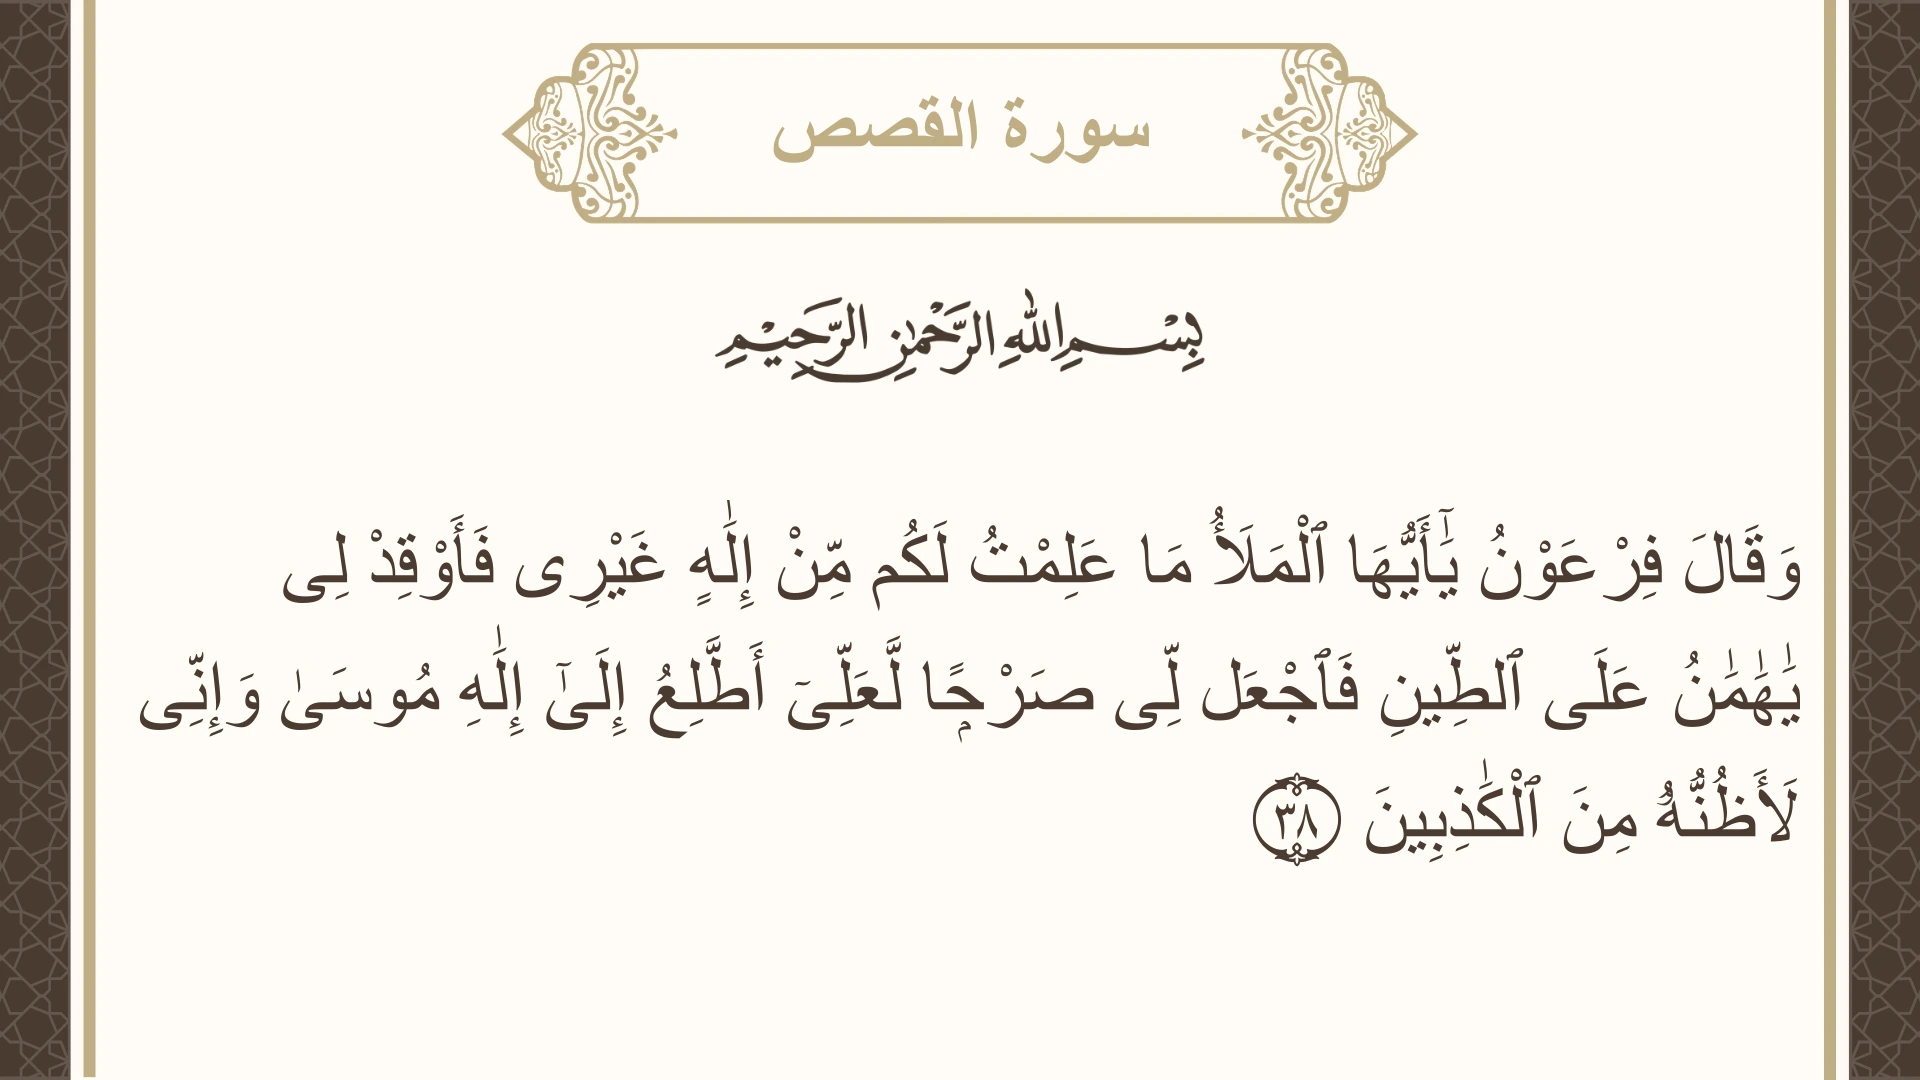 سورة القصص
بِسْمِ اللهِ الرَّحْمٰنِ الرَّحِيْمِ
وَقَالَ فِرْعَوْنُ يَٰٓأَيُّهَا ٱلْمَلَأُ مَا عَلِمْتُ لَكُم مِّنْ إِلَٰهٍ غَيْرِى فَأَوْقِدْ لِى
يَٰهَٰمَٰنُ عَلَى ٱلطِّينِ فَٱجْعَل لِّى صَرْحًۭا لَّعَلِّىٓ أَطَّلِعُ إِلَىٰٓ إِلَٰهِ مُوسَىٰ وَإِنِّى
لَأَظُنُّهُۥ مِنَ ٱلْكَٰذِبِينَ ٣٨